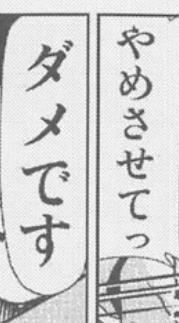 やめさせてっ
ダメです